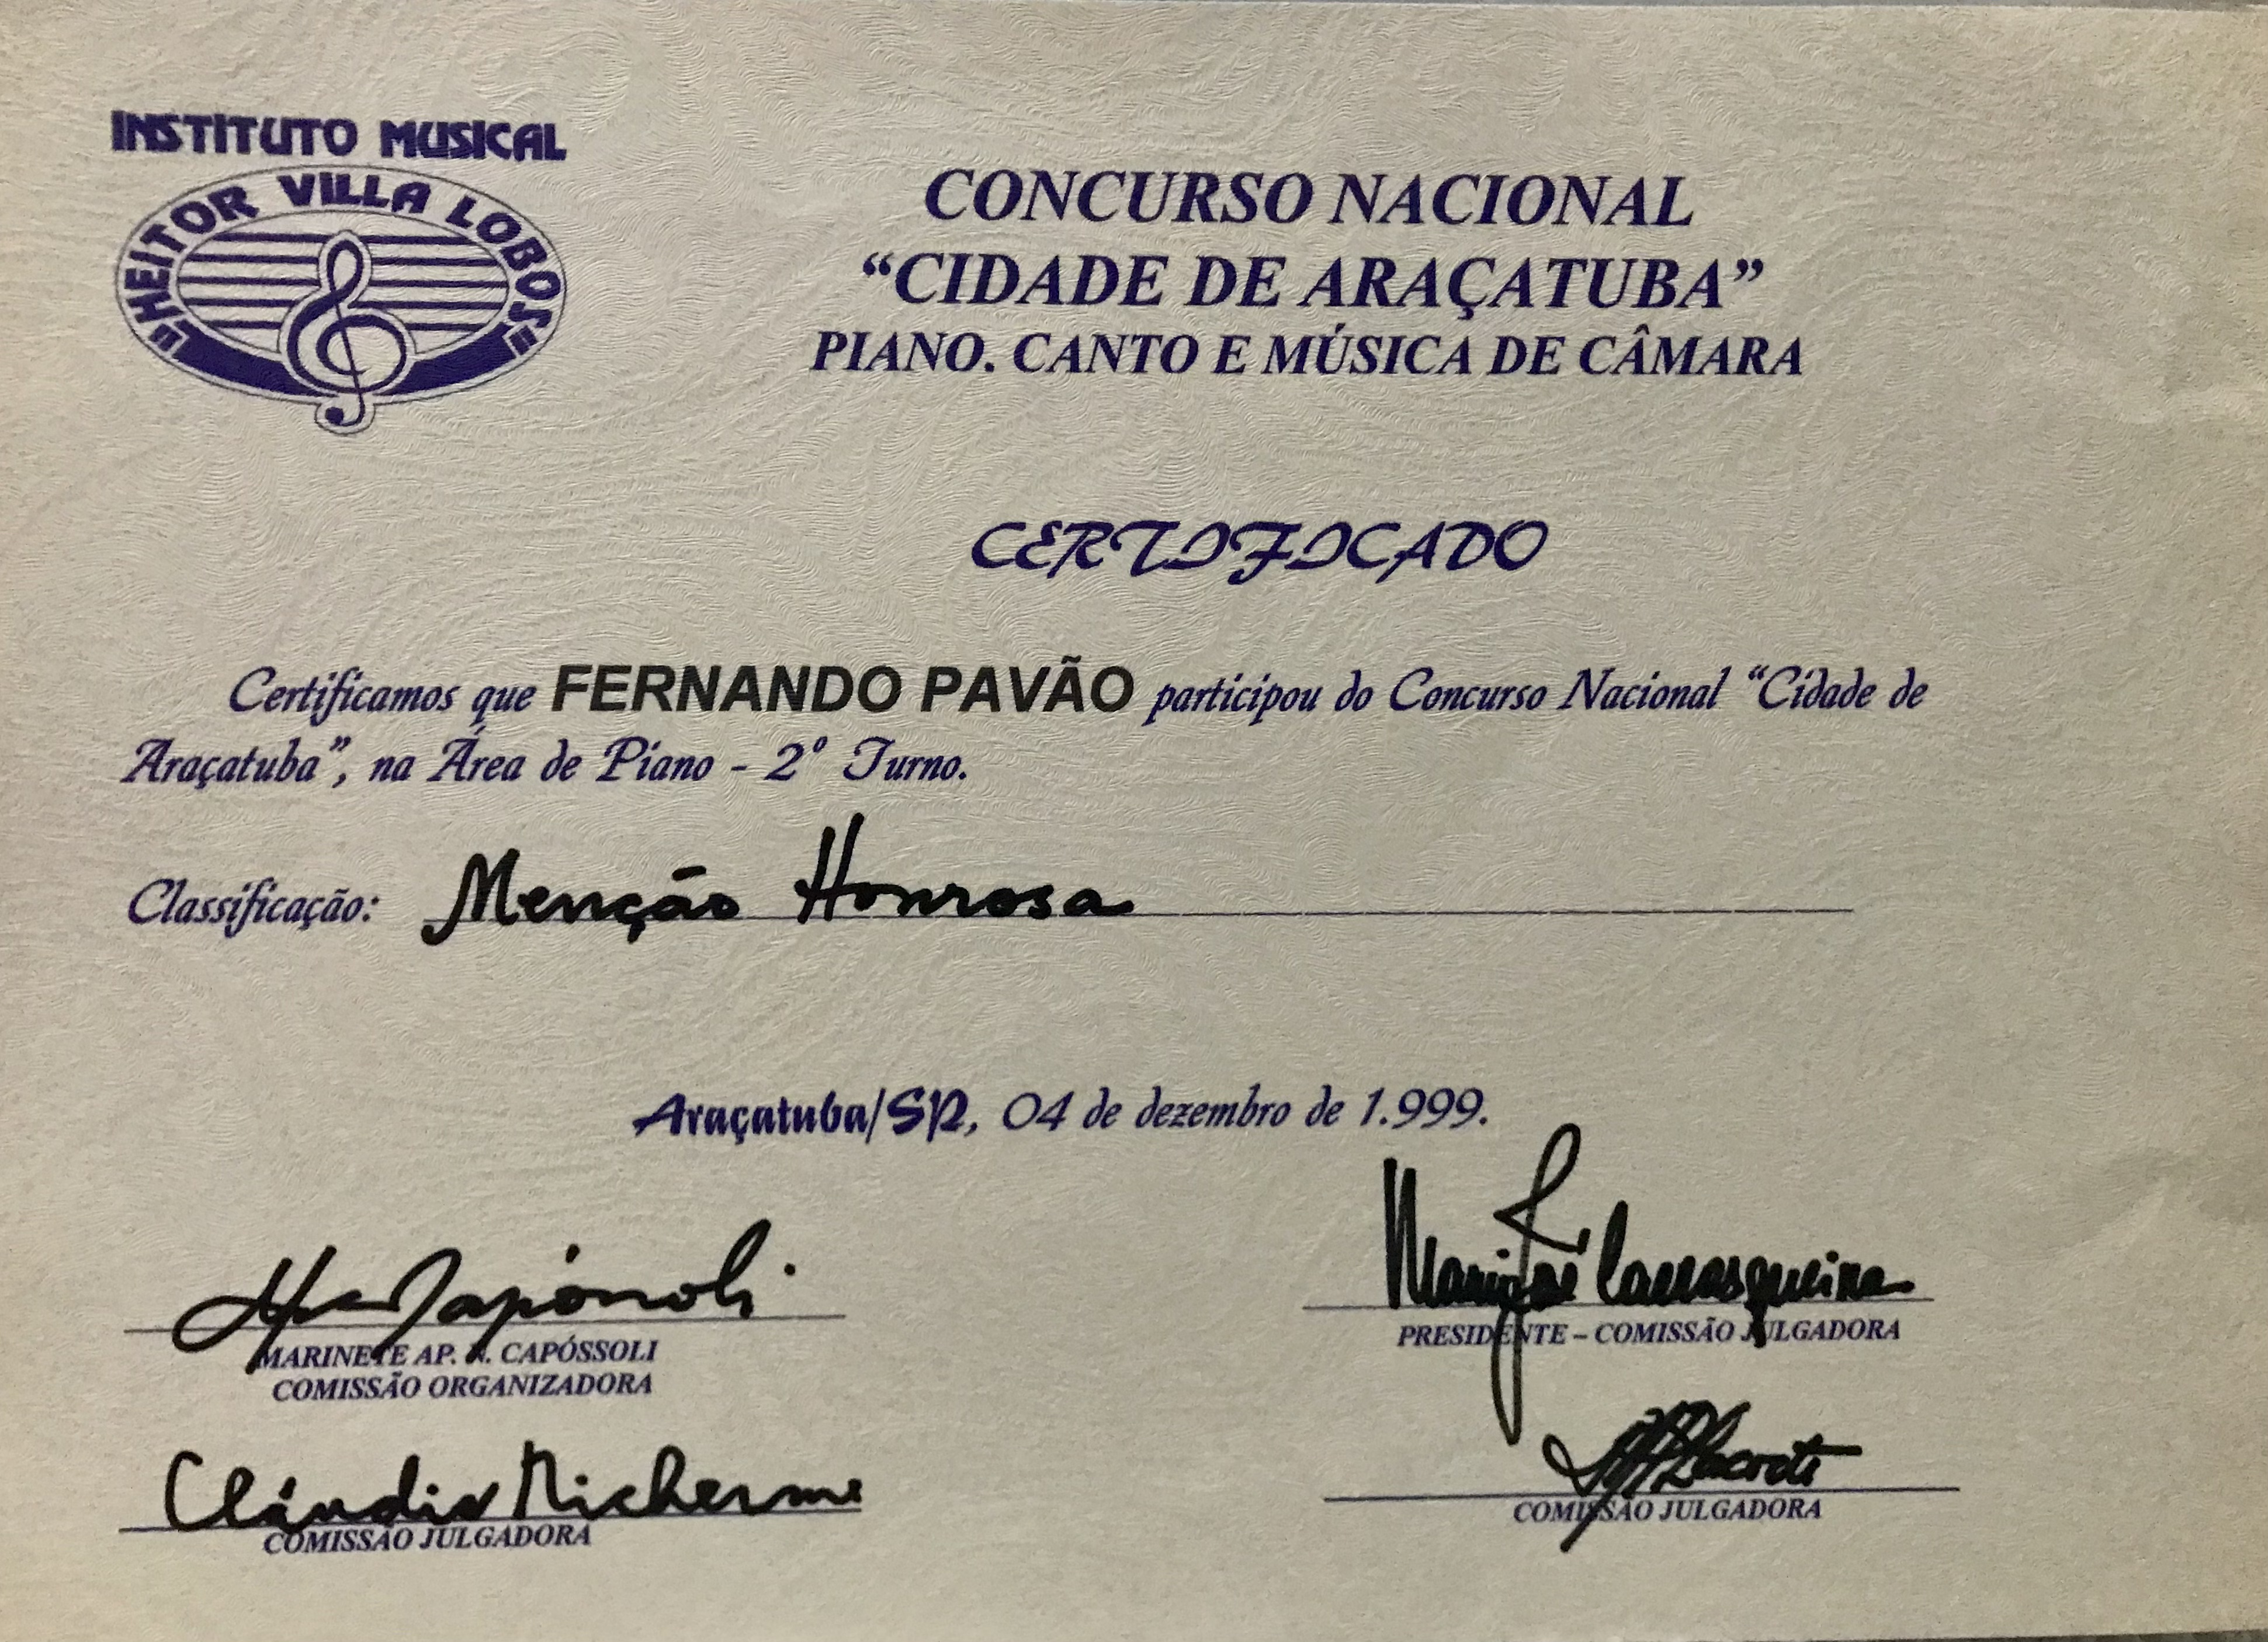 INSTITUTO MUSICAL
"HEITOR VILLA LOBOS"
CONCURSO NACIONAL
“CIDADE DE ARAÇATUBA”
PIANO. CANTO E MÚSICA DE CÂMARA
CERTIFICADO
Certificamos que FERNANDO PAVÃO participou do Concurso Nacional “Cidade de
Araçatuba”, na Área de Piano - 2º Turno.
Classificação: Menção Honrosa
Araçatuba/SP, 04 de dezembro de 1.999.
MARINETE AP. N. CAPÓSSOLI
COMISSÃO ORGANIZADORA
Maria José Carrasqueira
PRESIDENTE – COMISSÃO JULGADORA
Cláudio Richerme
COMISSÃO JULGADORA
COMISSÃO JULGADORA